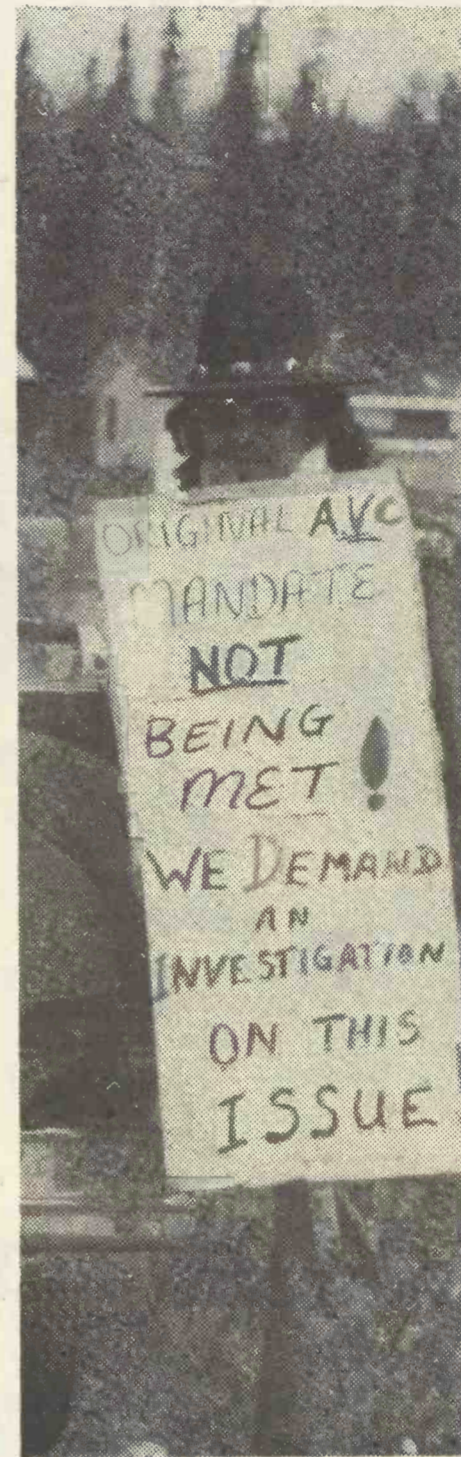 ORIGINAL AVC
MANDATE
NOT
BEING
MET !
WE DEMAND
AN
INVESTIGATION
ON THIS
ISSUE